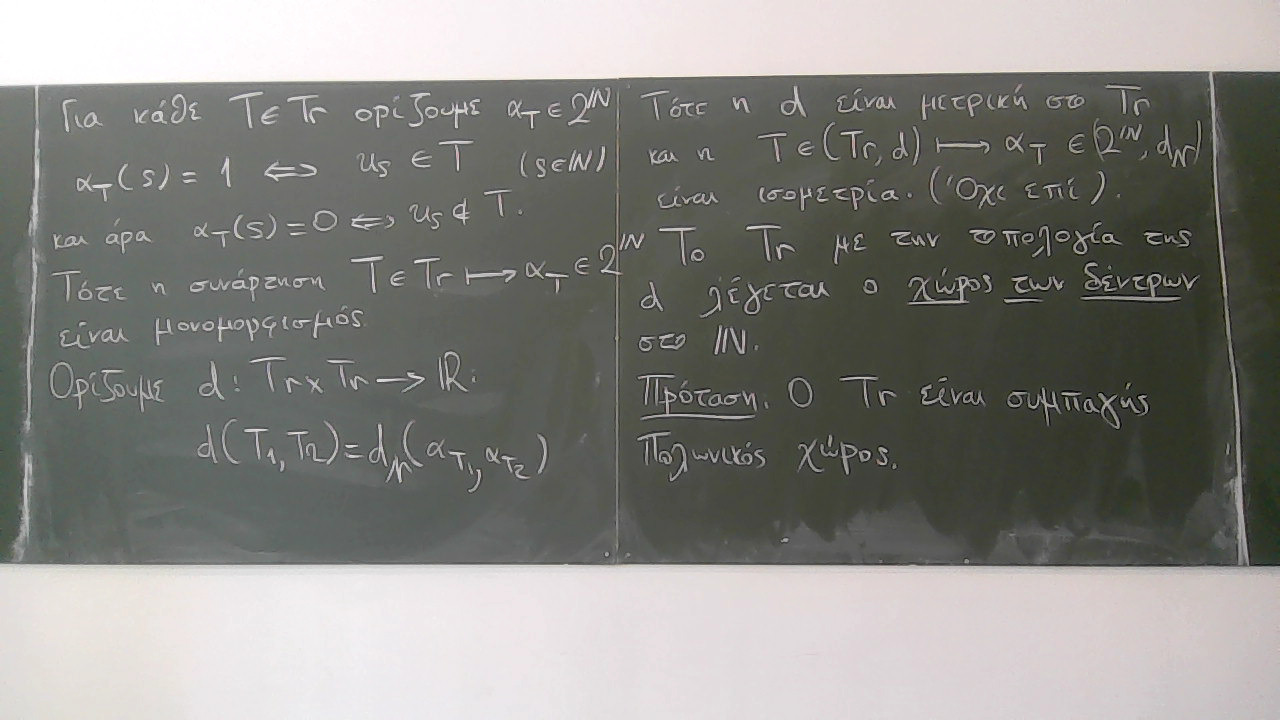 Για κάθε T∈Tr ορίζουμε α_T ∈ 2^ℕ
α_T(s) = 1 ⟺ u_s ∈ T (s∈ℕ)
και άρα α_T(s) = 0 ⟺ u_s ∉ T.
Τότε η συνάρτηση T∈Tr ⟼ α_T ∈ 2^ℕ
είναι μονομορφισμός.
Ορίζουμε d: Tr × Tr → ℝ:
d(T_1, T_2) = d_𝒩(α_{T_1}, α_{T_2})
Τότε η d είναι μετρική στο Tr
και η T∈(Tr, d) ⟼ α_T ∈ (2^ℕ, d_𝒩)
είναι ισομετρία. (Όχι επί).
Το Tr με την τοπολογία της
d λέγεται ο χώρος των δέντρων
στο ℕ.
Πρόταση. Ο Tr είναι συμπαγής
Πολωνικός χώρος.